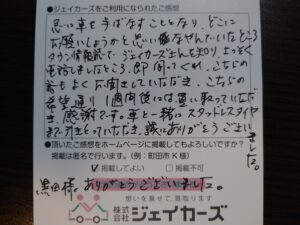 ●ジェイカーズをご利用になられたご感想
思い車を手ばなすことになり、どこに
お願いしようかと思い悩なやんでいたところ
タウン情報誌で、ジェイカーズさんを知り、さっそく
電話しましたところ、即聞ってくれ、こちらの
話もよくお聞きしていただき、こちらの
希望通り1週間後には、買い取っていただ
き、感謝です。車と一緒にスタッドレスタイヤ
まで引きとっていただき、誠にありがとうござい
ました。
●頂いたご感想をホームページに掲載してもよろしいですか?
掲載は匿名で行います。(例:町田市K様)
☑掲載してよい □掲載不可
黒田様、ありがとうございました。
夢を乗せて、買取ります
株式会社ジェイカーズ